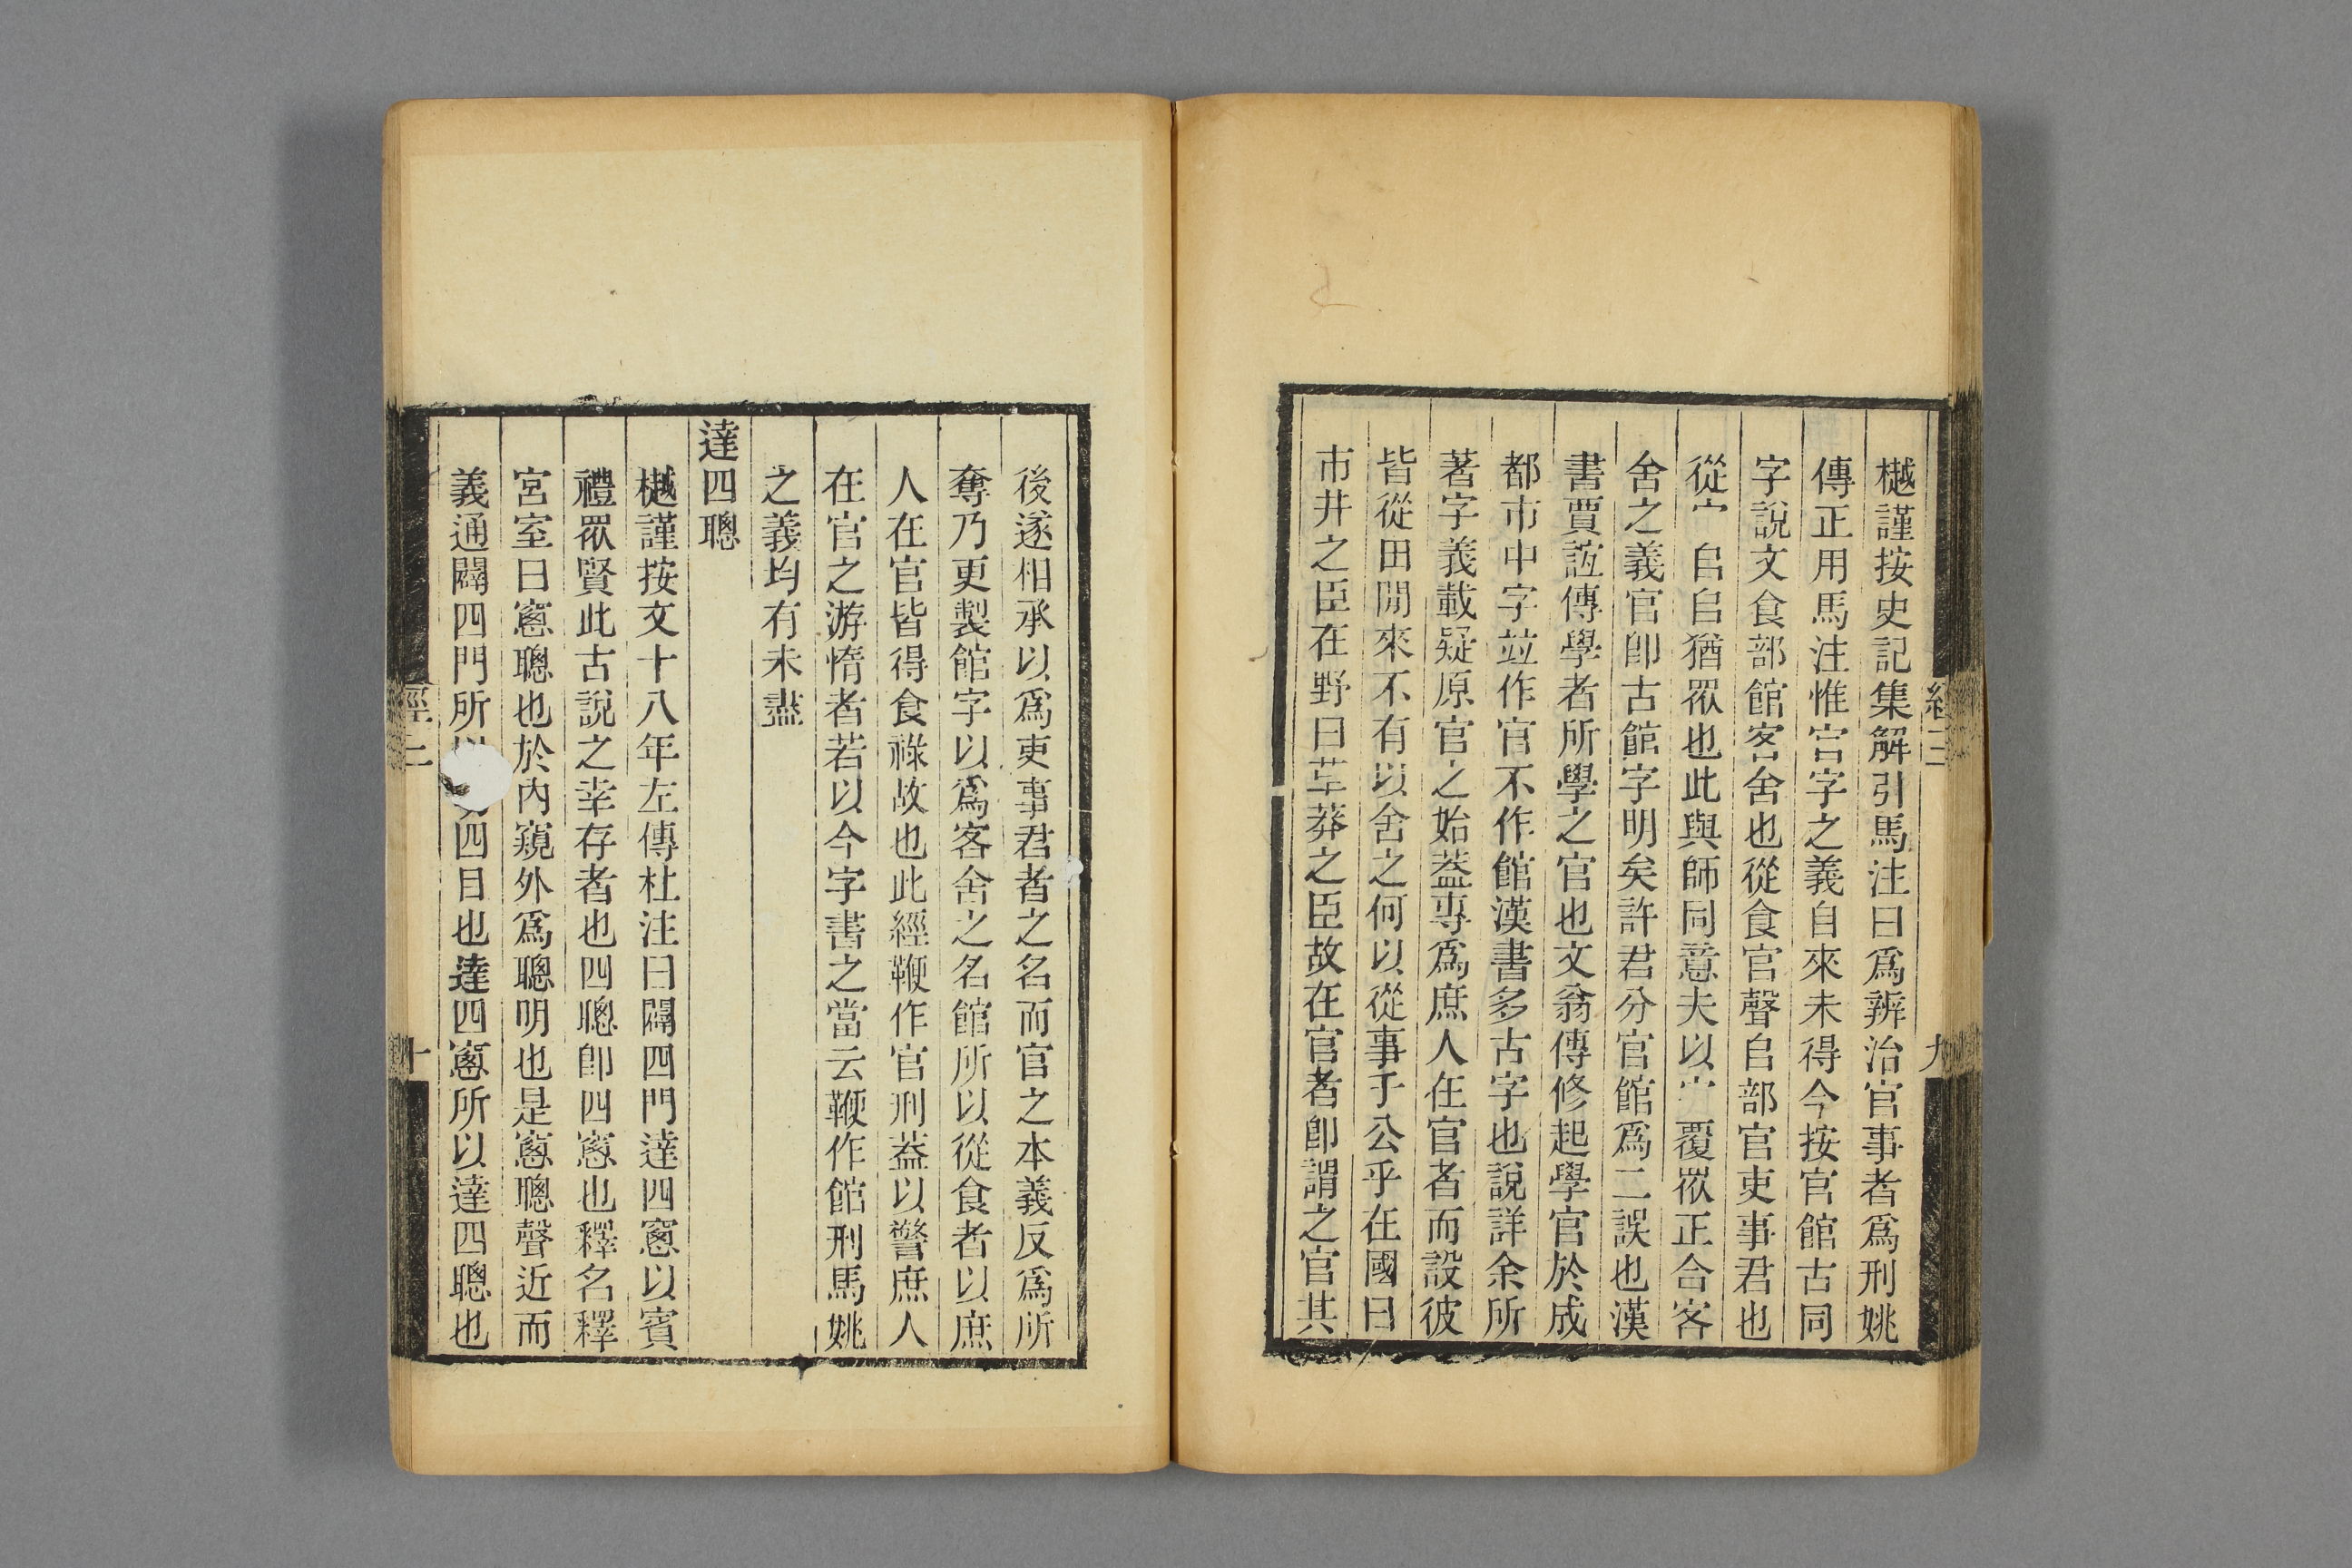 樾謹按史記集解引馬注曰爲辨治官事者爲刑姚
傳正用馬注惟官字之義自來未得今按官館古同
字說文食部館客舍也從食官聲𠂤部官吏事君也
從宀𠂤𠂤猶眾也此與師同意夫以宀覆眾正合客
舍之義官卽古館字明矣許君分官館爲二誤也漢
書賈誼傳學者所學之官也文翁傳修起學官於成
都市中字竝作官不作館漢書多古字也說詳余所
著字義載疑原官之始蓋專爲庶人在官者而設彼
皆從田閒來不有以舍之何以從事于公乎在國曰
市井之臣在野曰草莽之臣故在官者卽謂之官其
九
後遂相承以爲吏事君者之名而官之本義反爲所
奪乃更製館字以爲客舍之名館所以從食者以庶
人在官皆得食祿故也此經鞭作官刑蓋以警庶人
在官之游惰者若以今字書之當云鞭作館刑馬姚
之義均有未盡
達四聰
樾謹按文十八年左傳杜注曰闢四門達四窻以賓
禮眾賢此古說之幸存者也四聰卽四窻也釋名釋
宮室曰窻聰也於內窺外爲聰明也是窻聰聲近而
義通闢四門所四目也達四窻所以達四聰也
經上
十